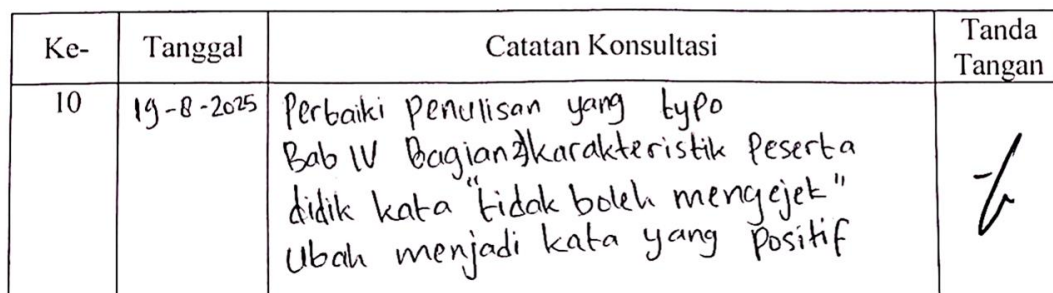 Ke- Tanggal Catatan Konsultasi Tanda Tangan
10 19-8-2025 Perbaiki penulisan yang typo
Bab IV Bagian 2) karakteristik Peserta
didik kata "tidak boleh mengejek"
Ubah menjadi kata yang Positif